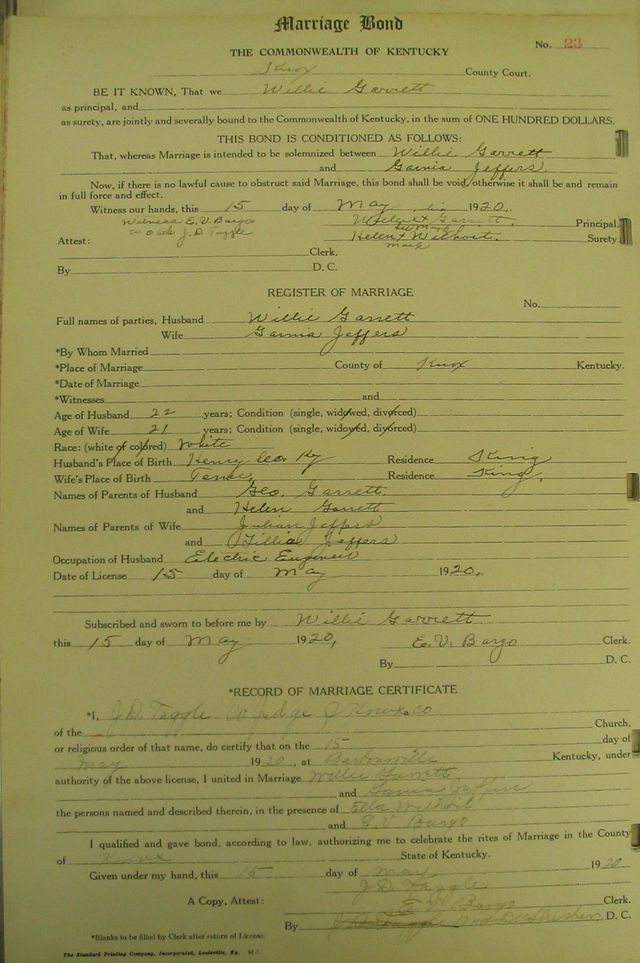 Marriage Bond
No. 23
THE COMMONWEALTH OF KENTUCKY
Knox County Court.
BE IT KNOWN, That we Willie Garrett
as principal, and
as surety, are jointly and severally bound to the Commonwealth of Kentucky, in the sum of ONE HUNDRED DOLLARS.
THIS BOND IS CONDITIONED AS FOLLOWS:
That, whereas Marriage is intended to be solemnized between Willie Garrett
and Garnia Jeffers.
Now, if there is no lawful cause to obstruct said Marriage, this bond shall be void, otherwise it shall be and remain
in full force and effect.
Witness our hands, this 15 day of May 1920.
Witness E. V. Bargo Willie x Garrett. Principal
J. D. Tuggle his Mark
Attest: Helen x Wilhoit. Surety
mark
Clerk.
By D. C.
REGISTER OF MARRIAGE
No.
Full names of parties, Husband Willie Garrett
Wife Garnia Jeffers
*By Whom Married
*Place of Marriage County of Knox Kentucky.
*Date of Marriage
*Witnesses and
Age of Husband 22 years; Condition (single, widowed, divorced)
Age of Wife 21 years; Condition (single, widowed, divorced)
Race: (white or colored) White
Husband's Place of Birth Henry Co. Ky Residence King
Wife's Place of Birth Tenn. Residence King.
Names of Parents of Husband Geo. Garrett.
and Helen Garrett
Names of Parents of Wife Julian Jeffers
and Tillia Jeffers
Occupation of Husband Electric Engineer
Date of License 15 day of May 1920.
Subscribed and sworn to before me by Willie Garrett
this 15 day of May 1920, E. V. Bargo Clerk.
By D. C.
*RECORD OF MARRIAGE CERTIFICATE
*I, J. D. Tuggle Co Judge of Knox Co
of the Church,
or religious order of that name, do certify that on the 15 day of
May 1920, at Barbourville Kentucky, under
authority of the above license, I united in Marriage Willie Garrett
and Garnia Jeffers
the persons named and described therein, in the presence of Etta Wilhoit
and E. V. Bargo
I qualified and gave bond, according to law, authorizing me to celebrate the rites of Marriage in the County
of Knox State of Kentucky.
Given under my hand, this 15 day of May 1920
J. D. Tuggle
A Copy, Attest: E. V. Bargo
By
*Blanks to be filled by Clerk after return of License.
The Standard Printing Company, Incorporated, Louisville, Ky.